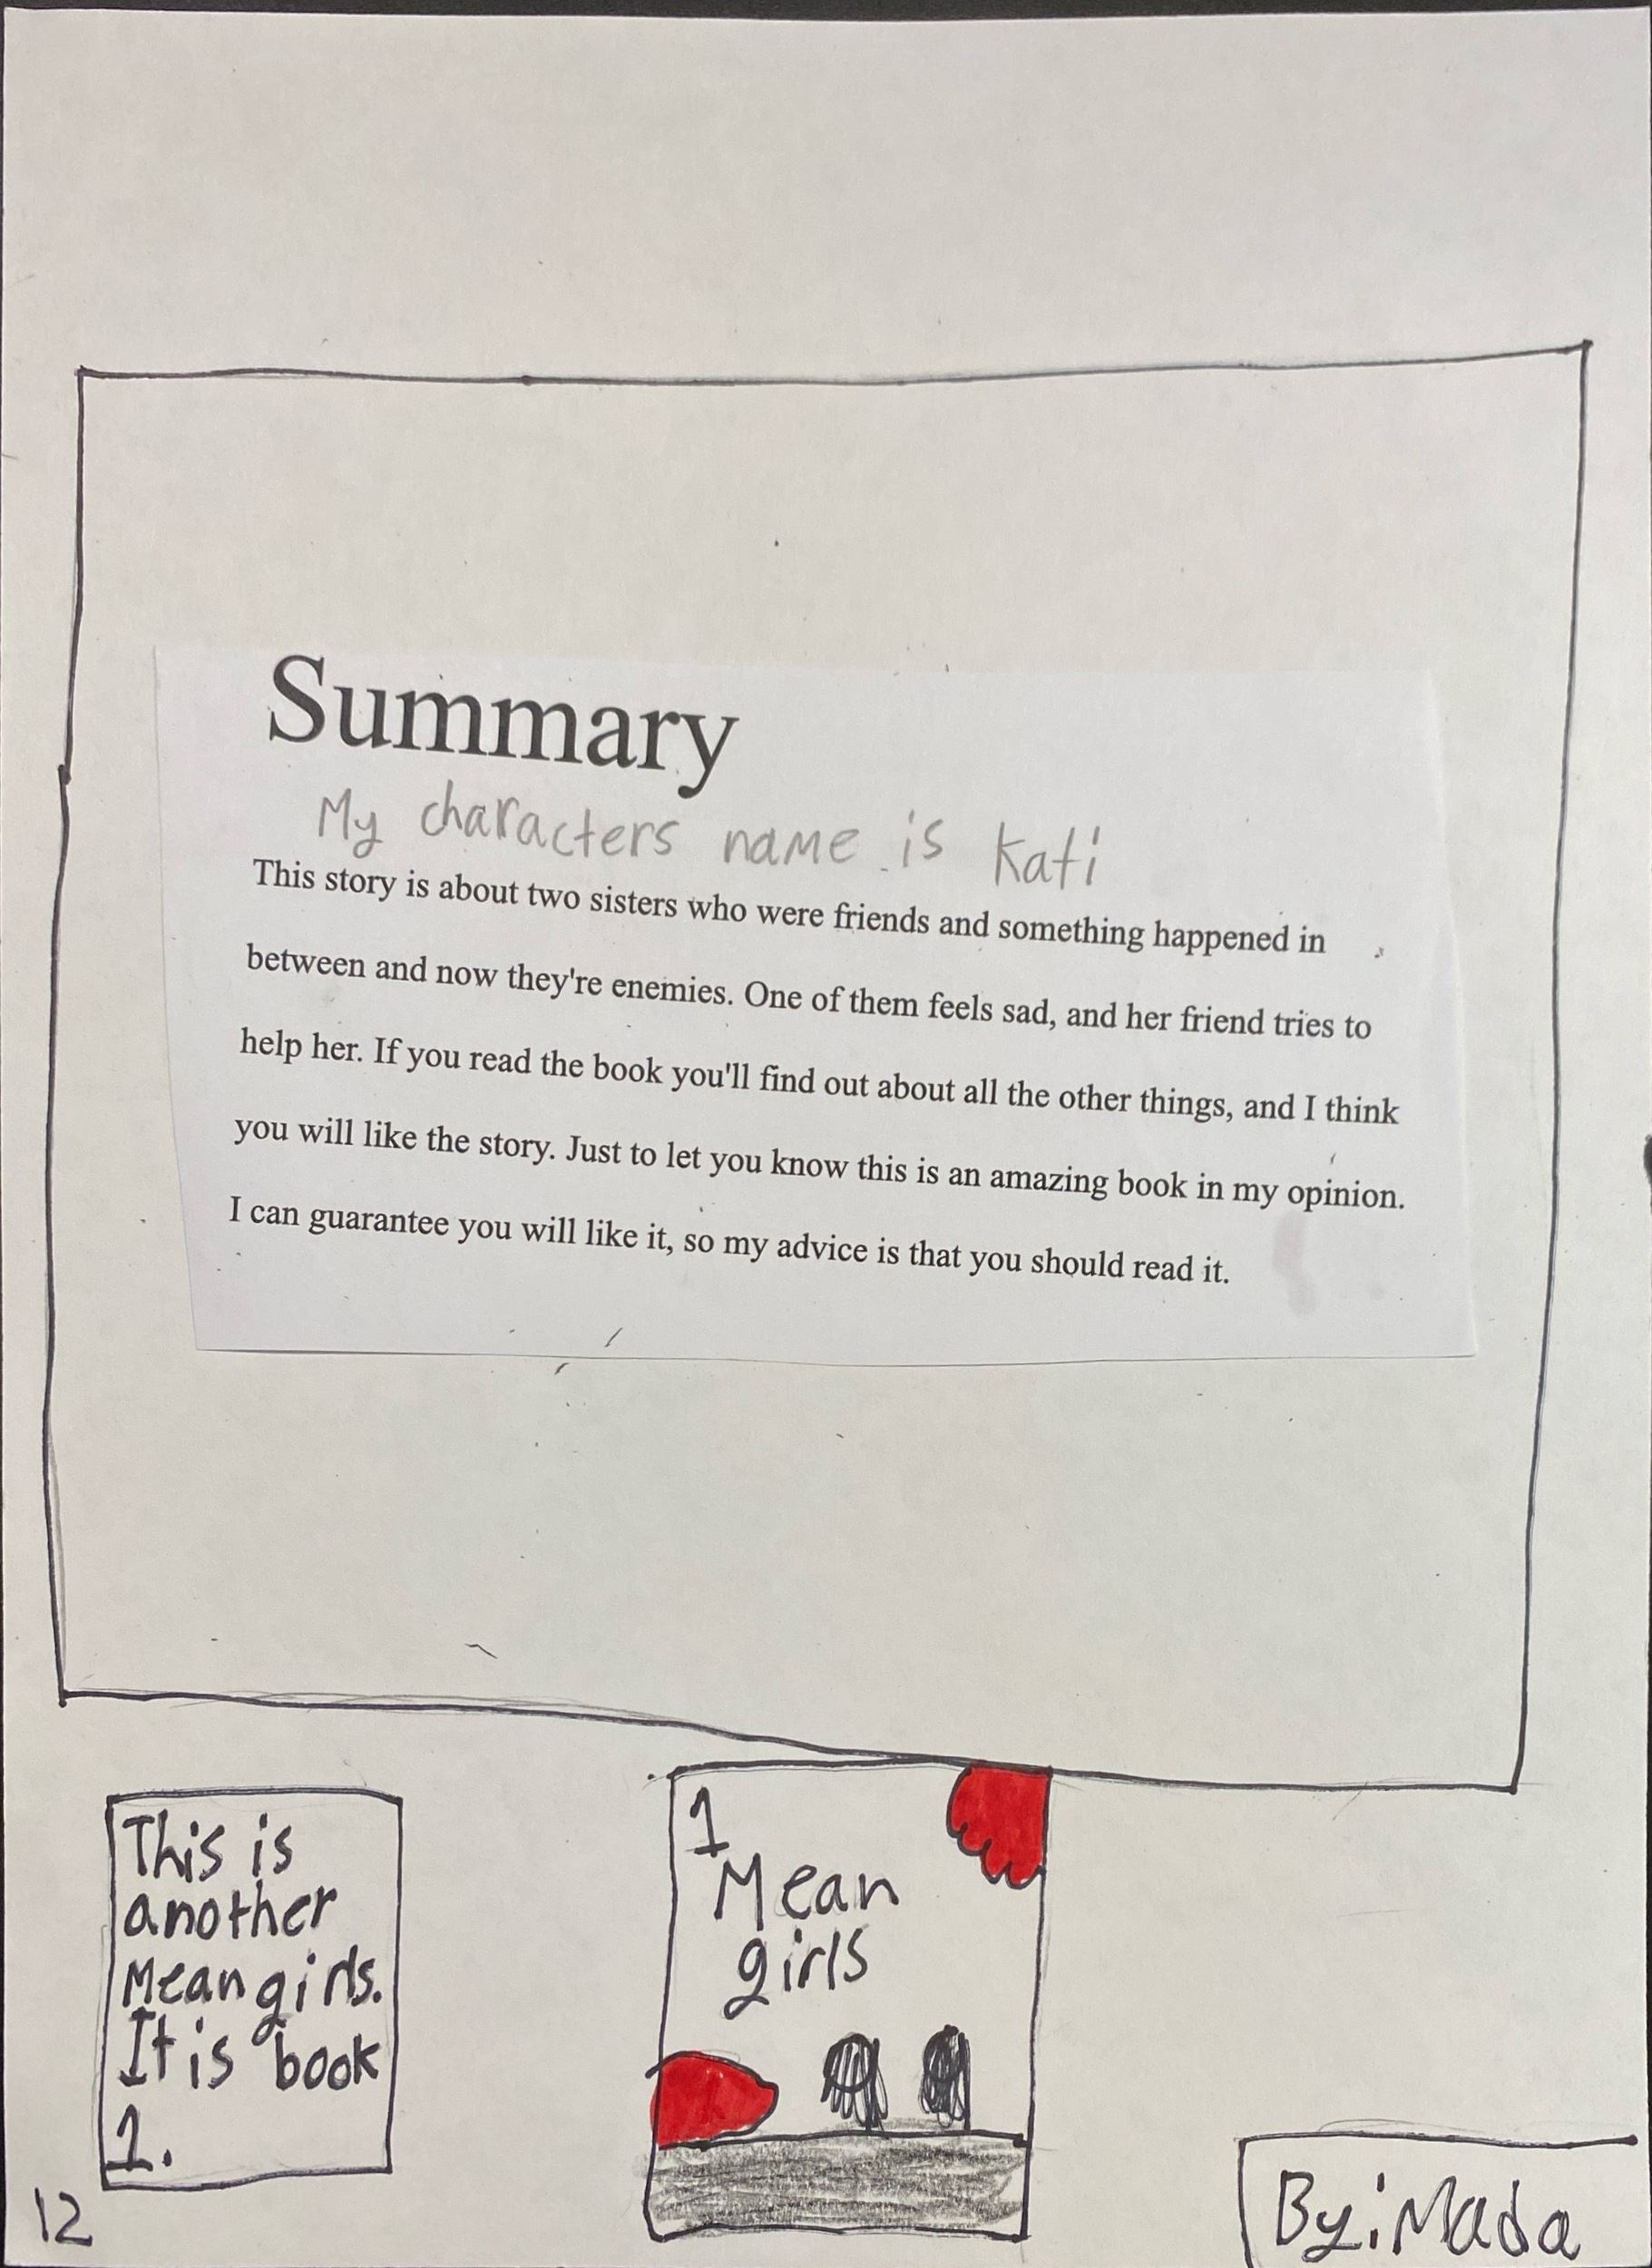 Summary
My characters name is Kati
This story is about two sisters who were friends and something happened in
between and now they're enemies. One of them feels sad, and her friend tries to
help her. If you read the book you'll find out about all the other things, and I think
you will like the story. Just to let you know this is an amazing book in my opinion.
I can guarantee you will like it, so my advice is that you should read it.
This is
another
Mean girls.
It is book
1.
1
Mean
girls
12
By: